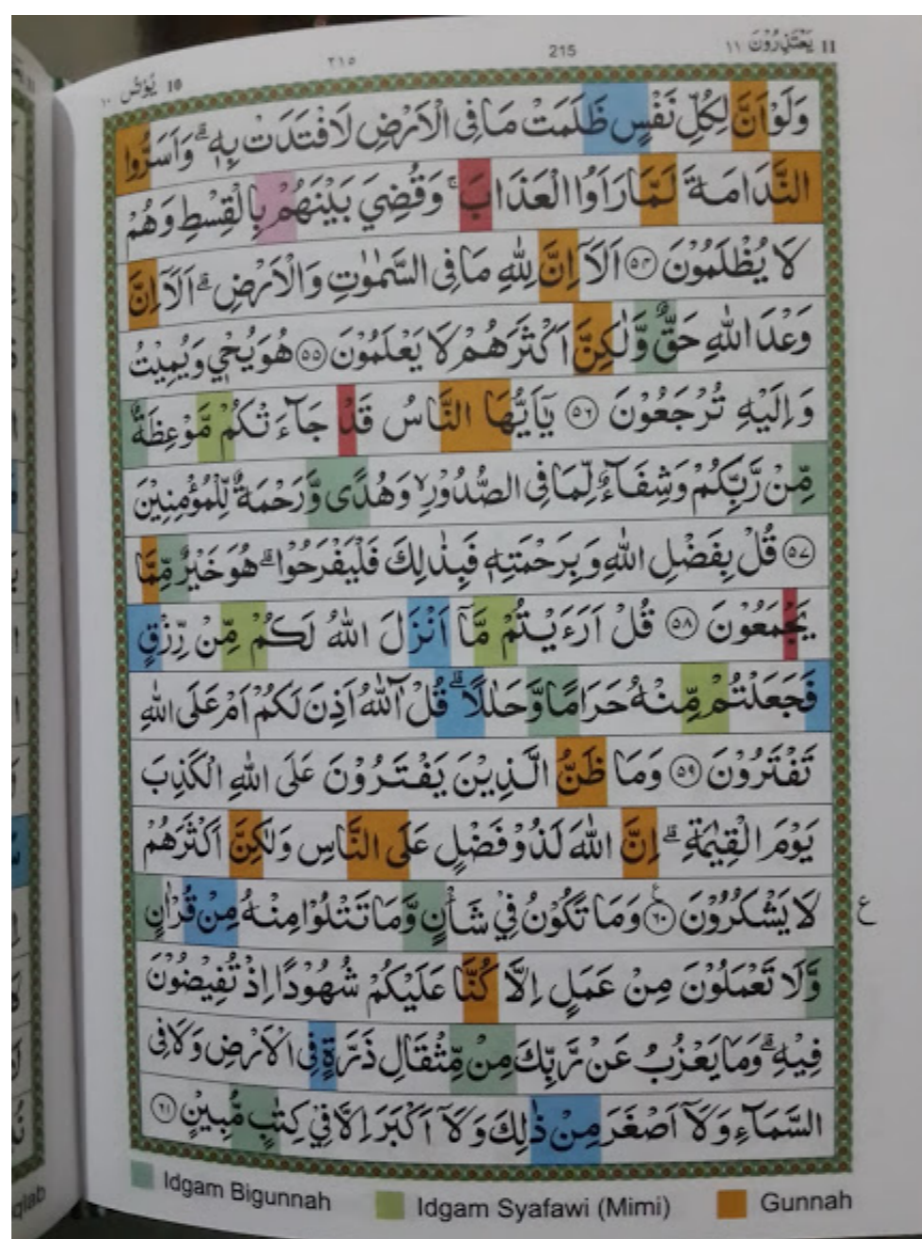 ١٠ يُوْنُسُ 10 ٢١٥ 215 ١١ يَعْتَذِرُوْنَ 11
وَلَوْ اَنَّ لِكُلِّ نَفْسٍ ظَلَمَتْ مَا فِى الْاَرْضِ لَافْتَدَتْ بِهٖۗ وَاَسَرُّوا
النَّدَامَةَ لَمَّا رَاَوُا الْعَذَابَۚ وَقُضِيَ بَيْنَهُمْ بِالْقِسْطِ وَهُمْ
لَا يُظْلَمُوْنَ ۝٥٤ اَلَآ اِنَّ لِلّٰهِ مَا فِى السَّمٰوٰتِ وَالْاَرْضِۗ اَلَآ اِنَّ
وَعْدَ اللّٰهِ حَقٌّ وَّلٰكِنَّ اَكْثَرَهُمْ لَا يَعْلَمُوْنَ ۝٥٥ هُوَ يُحْيٖ وَيُمِيْتُ
وَاِلَيْهِ تُرْجَعُوْنَ ۝٥٦ يٰٓاَيُّهَا النَّاسُ قَدْ جَاۤءَتْكُمْ مَّوْعِظَةٌ
مِّنْ رَّبِّكُمْ وَشِفَاۤءٌ لِّمَا فِى الصُّدُوْرِۙ وَهُدًى وَّرَحْمَةٌ لِّلْمُؤْمِنِيْنَ
۝٥٧ قُلْ بِفَضْلِ اللّٰهِ وَبِرَحْمَتِهٖ فَبِذٰلِكَ فَلْيَفْرَحُوْاۗ هُوَ خَيْرٌ مِّمَّا
يَجْمَعُوْنَ ۝٥٨ قُلْ اَرَءَيْتُمْ مَّآ اَنْزَلَ اللّٰهُ لَكُمْ مِّنْ رِّزْقٍ
فَجَعَلْتُمْ مِّنْهُ حَرَامًا وَّحَلٰلًاۗ قُلْ اٰۤللّٰهُ اَذِنَ لَكُمْ اَمْ عَلَى اللّٰهِ
تَفْتَرُوْنَ ۝٥٩ وَمَا ظَنُّ الَّذِيْنَ يَفْتَرُوْنَ عَلَى اللّٰهِ الْكَذِبَ
يَوْمَ الْقِيٰمَةِۗ اِنَّ اللّٰهَ لَذُوْ فَضْلٍ عَلَى النَّاسِ وَلٰكِنَّ اَكْثَرَهُمْ
لَا يَشْكُرُوْنَ ۝٦٠ وَمَا تَكُوْنُ فِيْ شَأْنٍ وَّمَا تَتْلُوْا مِنْهُ مِنْ قُرْاٰنٍ ع
وَّلَا تَعْمَلُوْنَ مِنْ عَمَلٍ اِلَّا كُنَّا عَلَيْكُمْ شُهُوْدًا اِذْ تُفِيْضُوْنَ
فِيْهِۗ وَمَا يَعْزُبُ عَنْ رَّبِّكَ مِنْ مِّثْقَالِ ذَرَّةٍ فِى الْاَرْضِ وَلَا فِى
السَّمَاۤءِ وَلَآ اَصْغَرَ مِنْ ذٰلِكَ وَلَآ اَكْبَرَ اِلَّا فِيْ كِتٰبٍ مُّبِيْنٍ ۝٦١
Idgam Bigunnah Idgam Syafawi (Mimi) Gunnah